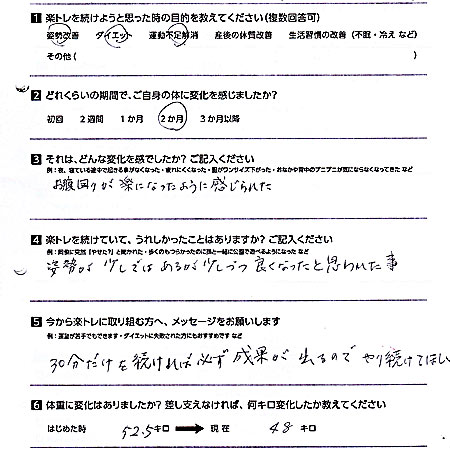 1 楽トレを続けようと思った時の目的を教えてください(複数回答可)
姿勢改善 ダイエット 運動不足解消 産後の体質改善 生活習慣の改善(不眠・冷え など)
その他( )
2 どれくらいの期間で、ご自身の体に変化を感じましたか?
初回 2週間 1か月 2か月 3か月以降
3 それは、どんな変化を感でしたか? ご記入ください
例:夜、寝ている途中で起きる事がなくなった・疲れにくくなった・服がワンサイズ下がった・おなかや背中のプニプニが気にならなくなってきた など
お腹回りが楽になったように感じられた
4 楽トレを続けていて、うれしかったことはありますか? ご記入ください
姿勢が少しではあるが少しづつ良くなったと思われた事
5 今から楽トレに取り組む方へ、メッセージをお願いします
例:運動が苦手でもできます・ダイエットに失敗された方にもおすすめです など
30分だけを続ければ必ず成果が出るのでやり続けてほしい
6 体重に変化はありましたか? 差し支えなければ、何キロ変化したか教えてください
はじめた時 52.5キロ → 現在 48 キロ